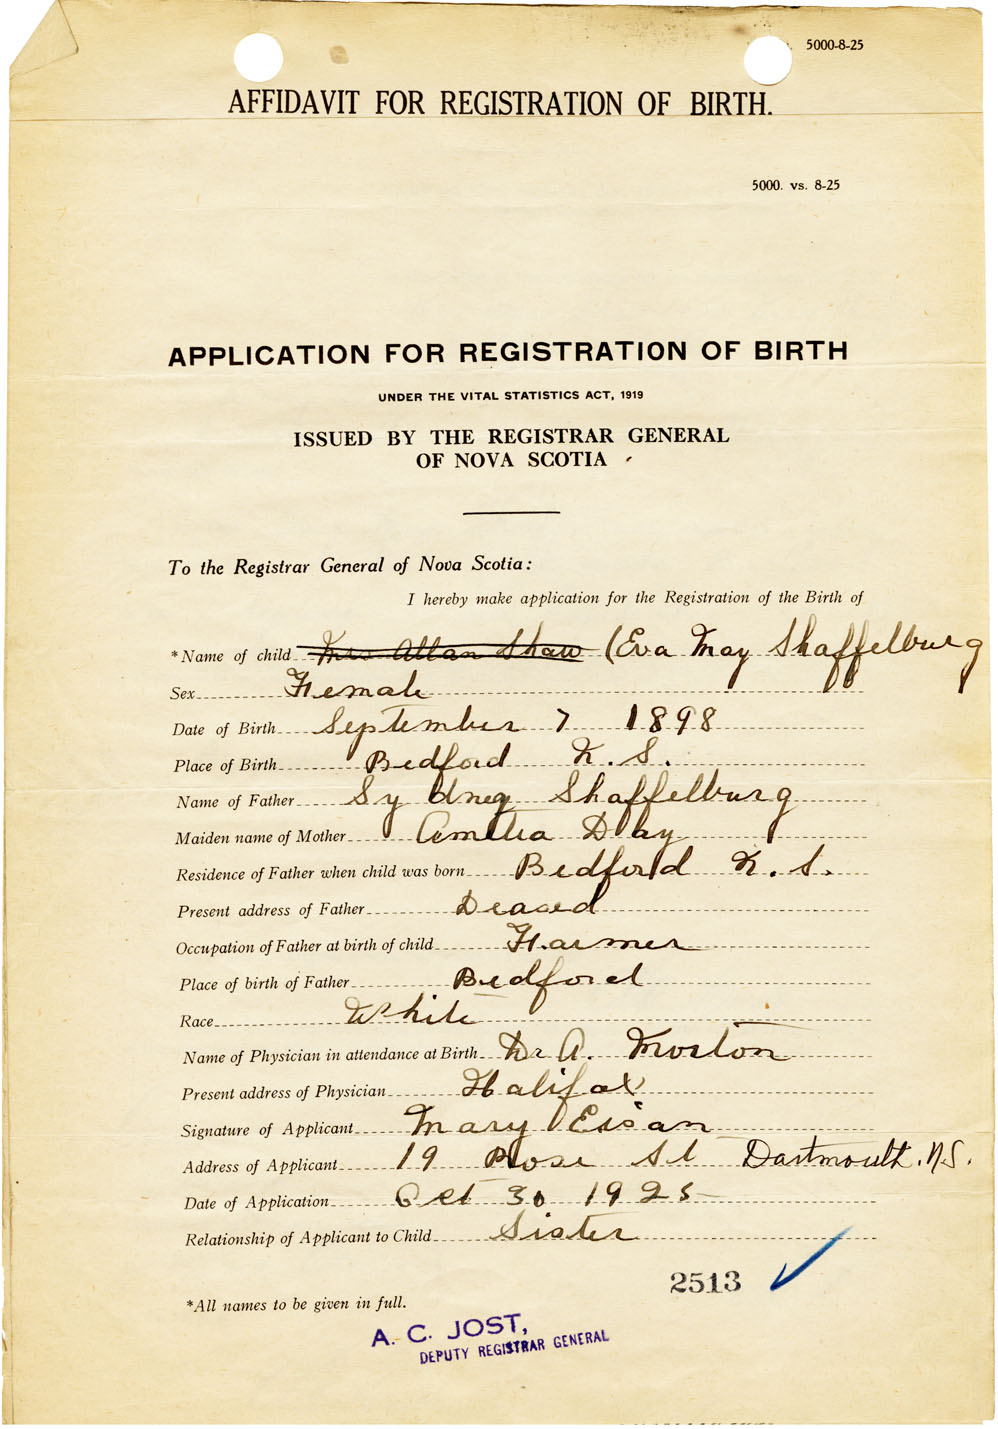 5000-8-25
AFFIDAVIT FOR REGISTRATION OF BIRTH.
5000. vs. 8-25
APPLICATION FOR REGISTRATION OF BIRTH
UNDER THE VITAL STATISTICS ACT, 1919
ISSUED BY THE REGISTRAR GENERAL
OF NOVA SCOTIA
To the Registrar General of Nova Scotia:
I hereby make application for the Registration of the Birth of
*Name of child Mrs Allan Shaw (Eva May Shaffelburg
Sex Female
Date of Birth September 7 1898
Place of Birth Bedford N.S.
Name of Father Sydney Shaffelburg
Maiden name of Mother Amelia Day
Residence of Father when child was born Bedford N.S.
Present address of Father Deaced
Occupation of Father at birth of child Farmer
Place of birth of Father Bedford
Race White
Name of Physician in attendance at Birth Dr A. Morton
Present address of Physician Halifax
Signature of Applicant Mary Eisan
Address of Applicant 19 Rose St Dartmouth. N.S.
Date of Application Oct 30 1925
Relationship of Applicant to Child Sister
2513
*All names to be given in full.
A. C. JOST,
DEPUTY REGISTRAR GENERAL